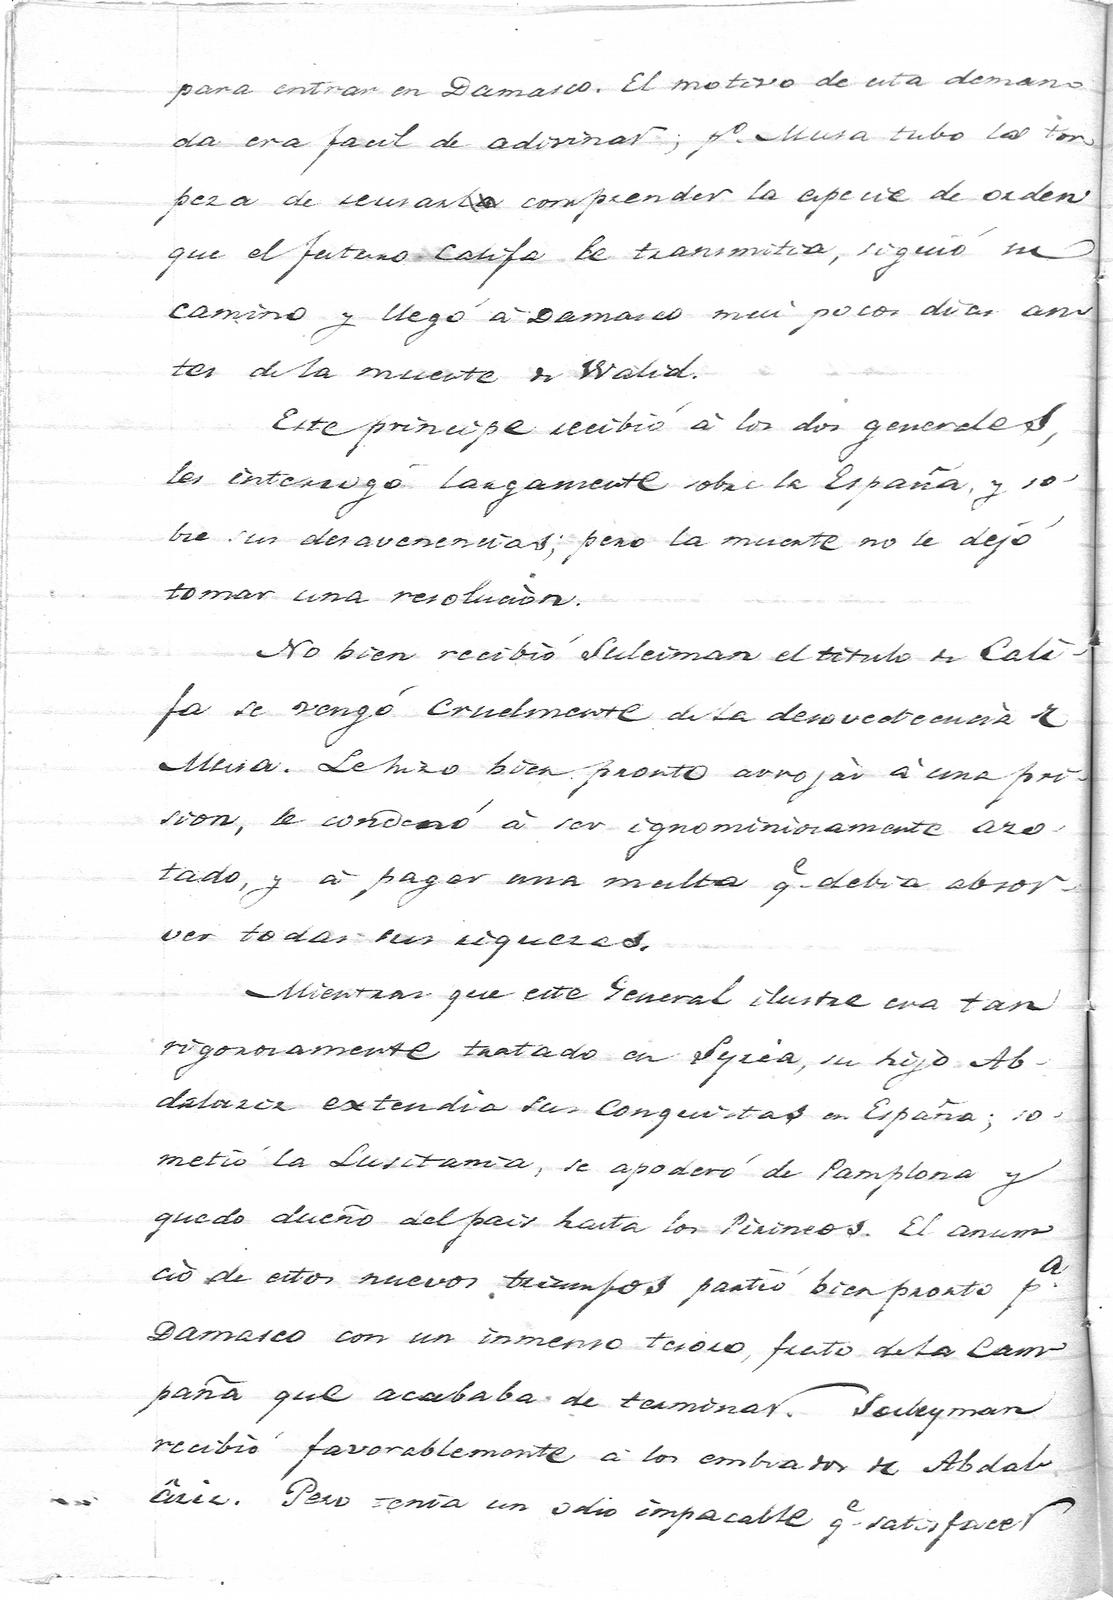 para entrar en Damasco. El motivo de esta deman-
da era facil de adivinar; p.º Musa tubo la tor
peza de reusarla comprender la especie de orden
que el futuro Califa le transmitia, siguió su
camino y llegó à Damasco mui pocos dias an-
tes de la muerte de Walid.
Este principe recibió à los dos generales,
les interrogó largamente sobre la España, y so-
bre sus desavenencias; pero la muerte no le dejó
tomar una resoluciòn.
No bien recibió Suleiman el titulo de Cali-
fa se vengó cruelmente de la desovedecencia de
Musa. Le hizo bien pronto arrojàr à una pri-
sion, le condenó à ser ignominiosamente azo-
tado, y à pagar una multa q.e debia absor-
ver todas sus riquezas.
Mientras que este General ilustre era tan
rigorosamente tratado en Syria, su hijo Ab-
dalaziz extendia sus conquistas en España; so-
metió la Lusitania, se apoderó de Pamplona y
quedo dueño del pais hasta los Pirineos. El anun-
cio de estos nuevos triumfos partió bien pronto p.a
Damasco con un inmenso tesoro, fruto de la Cam-
paña que acababa de terminar. Suleyman
recibió favorablemente a los embiados de Abdal-
àziz. Pero tenia un odio impacable q.e satisfacer